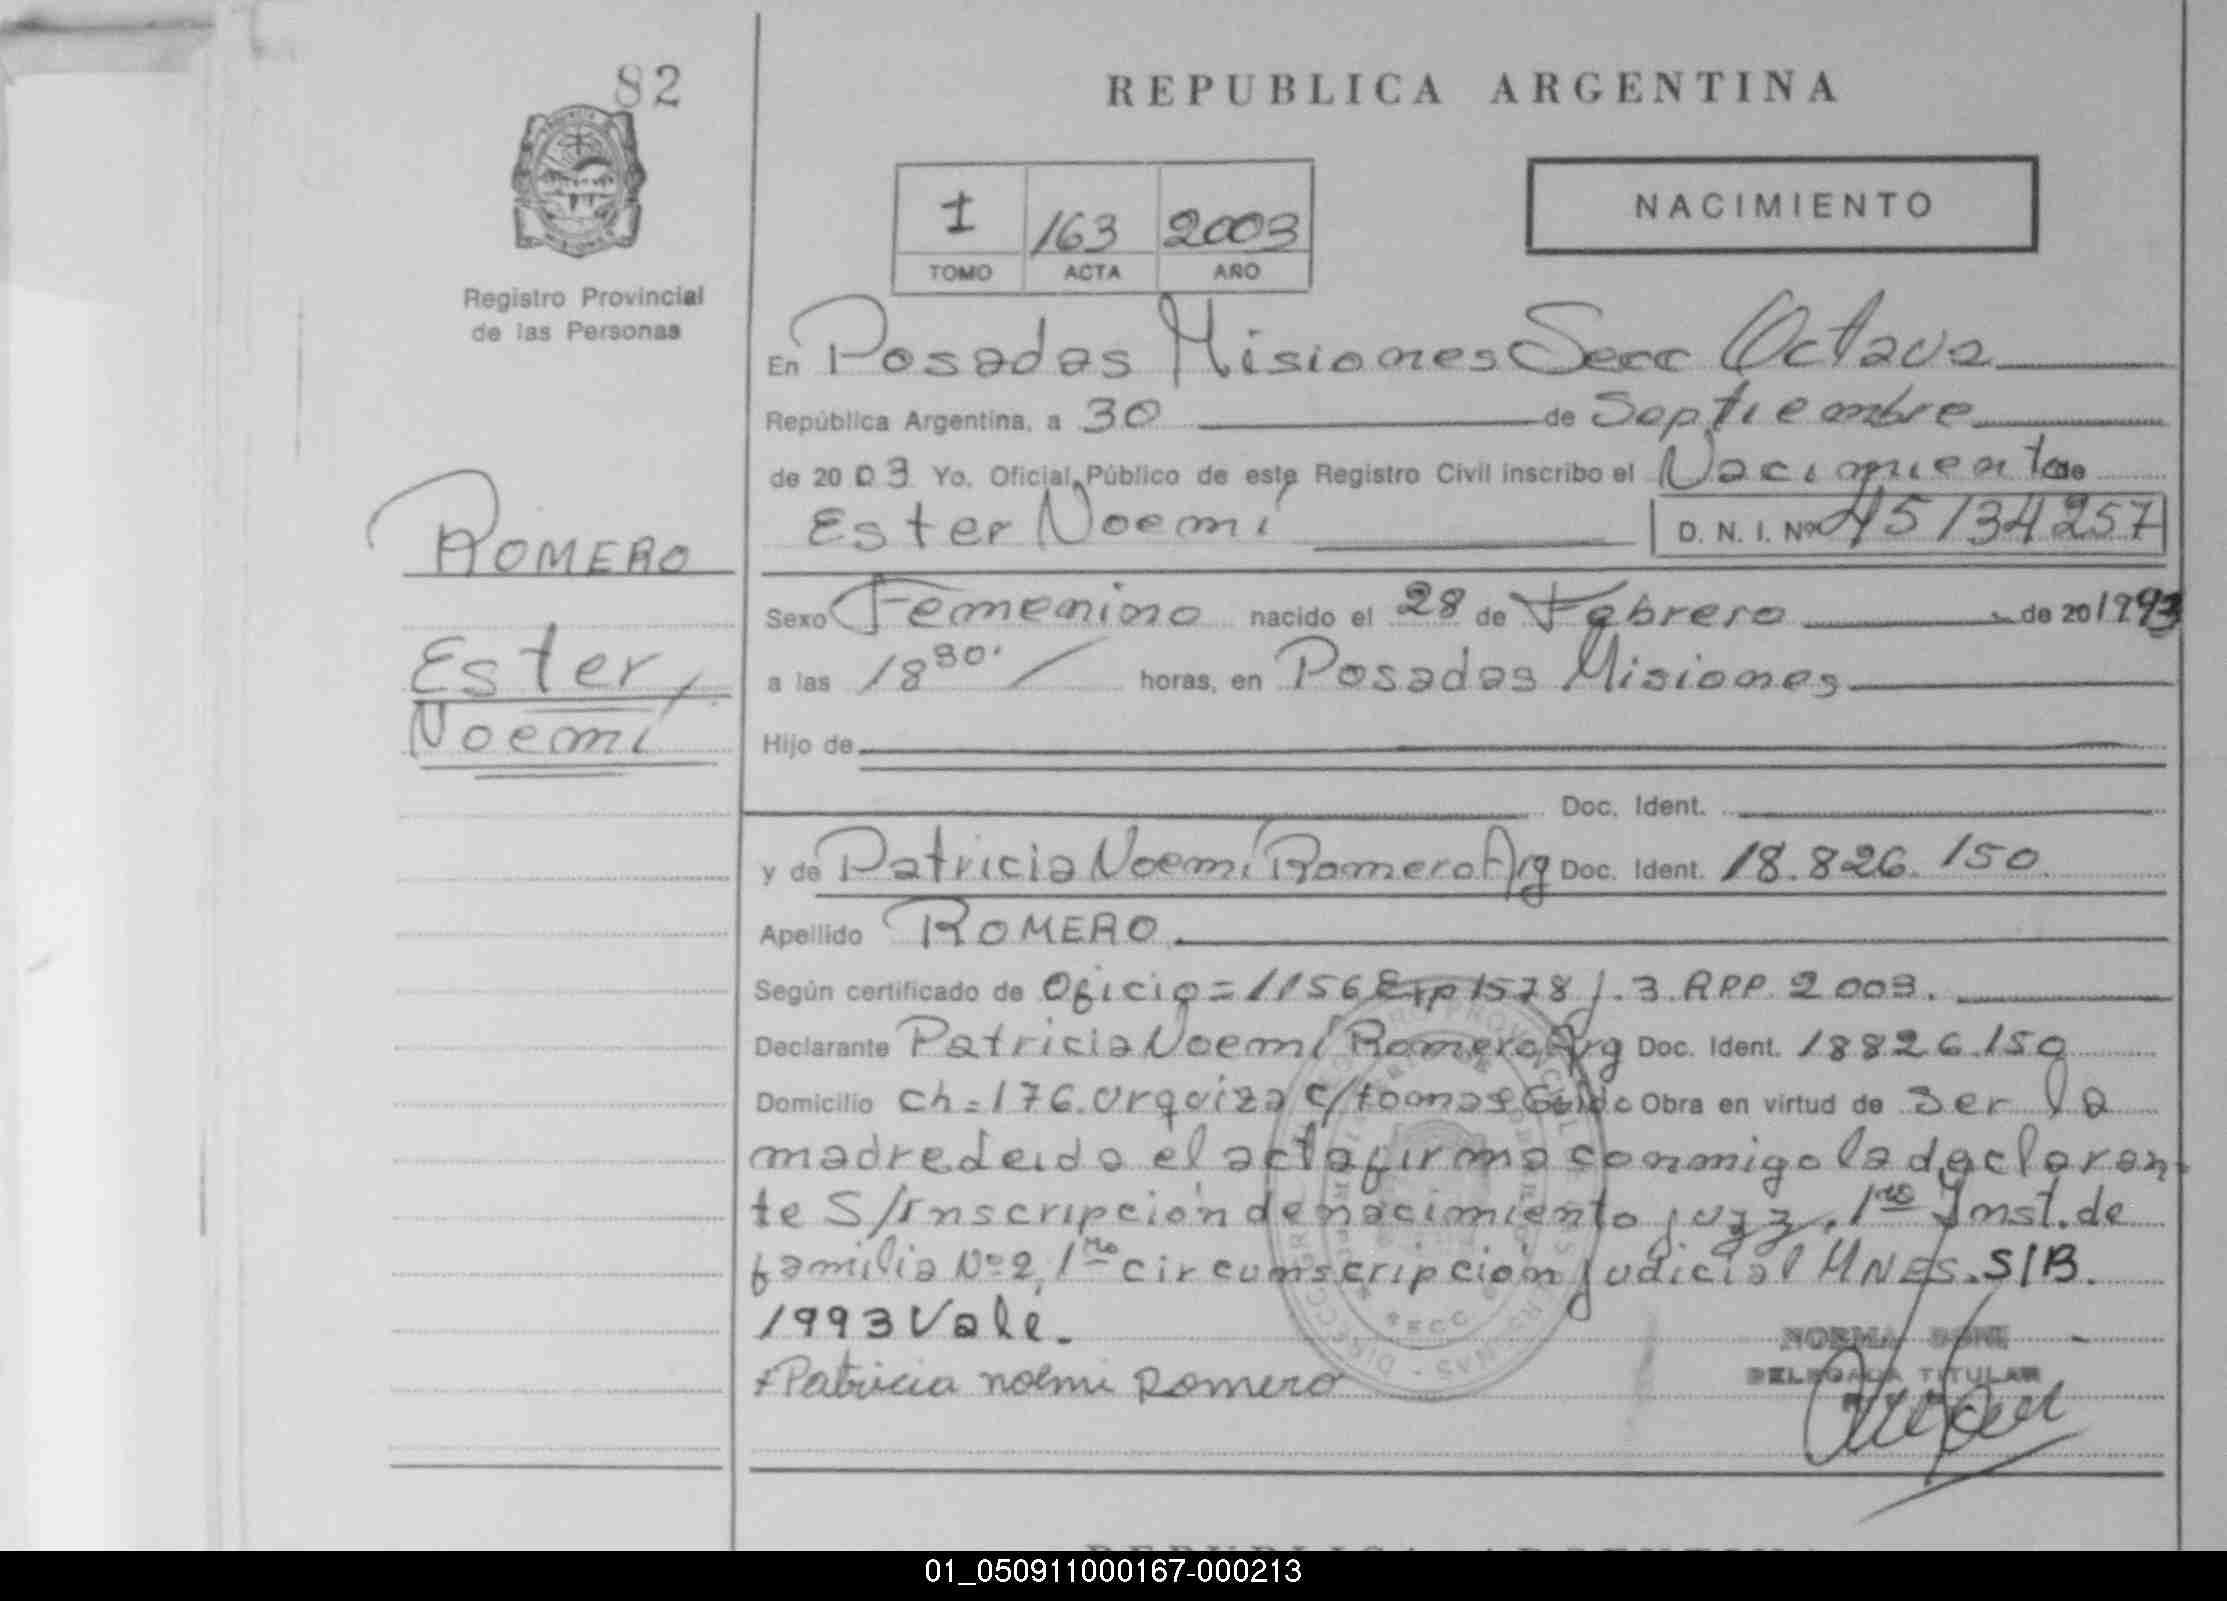 82
REPUBLICA ARGENTINA
NACIMIENTO
1 163 2003
TOMO ACTA AÑO
Registro Provincial
de las Personas
En Posadas Misiones Secc Octava
República Argentina, a 30 de Septiembre
de 2003 Yo, Oficial Público de este Registro Civil inscribo el Nacimiento de
Ester Noemí D. N. I. Nº 45134257
ROMERO
Ester
Noemí
Sexo Femenino nacido el 28 de Febrero de 20 1993
a las 18 30' horas, en Posadas Misiones
Hijo de
Doc. Ident.
y de Patricia Noemí Romero Arg Doc. Ident. 18.826.150
Apellido ROMERO
Según certificado de Oficio=1156 Exp 1578/.3.RPP.2003.
Declarante Patricia Noemí Romero Arg Doc. Ident. 18826.150
Domicilio ch=176.Urquiza c/tomas Guido Obra en virtud de ser la
madre deida el acta firma conmigo la declaran-
te S/Inscripción de nacimiento juzg. 1ro Inst. de
familia Nº2, 1ra circunscripción judicial MNES. S/B.
1993 Vale.
NORMA
DELEGADA TITULAR
Patricia noemi Romero
REPUBLICA ARGENTINA
01_050911000167-000213